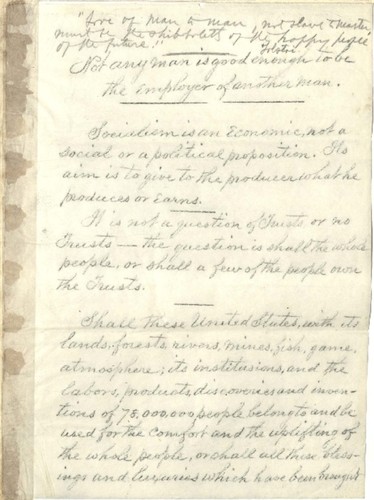 "Love of man to man, not slave & master
must be the shibboleth of the happy people
of the future."
Tolstoi
Not any man is good enough to be
the Employer of another man.
Socialism is an Economic, not a
social or a political proposition. Its
aim is to give to the producer what he
produces or Earns.
It is not a question of Trusts or no
Trusts — the question is shall the whole
people, or shall a few of the people own
the Trusts.
Shall these United States, with its
lands, forests, rivers, mines, fish, game,
atmosphere; its institutions, and the
labors, products, discoveries and inven-
tions of 78,000,000 people belong to and be
used for the comfort and the uplifting of
the whole people, or shall all these bless-
ings and luxuries which have been brought